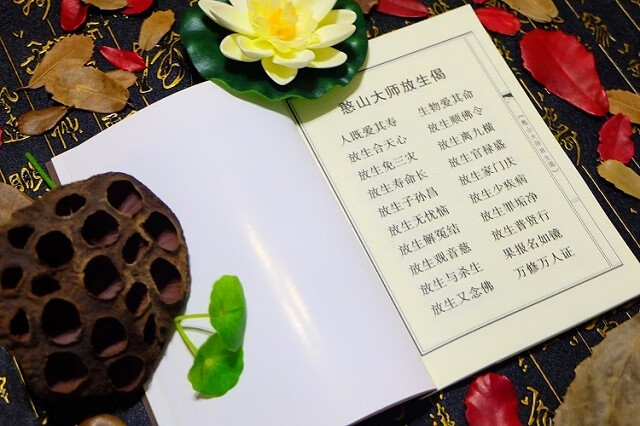 憨山大师放生偈
人既爱其寿 生物爱其命
放生合天心 放生顺佛令
放生免三灾 放生离九横
放生寿命长 放生官禄盛
放生子孙昌 放生家门庆
放生无忧恼 放生少疾病
放生解冤结 放生罪垢净
放生观音慈 放生普贤行
放生与杀生 果报名如镜
放生又念佛 万修万人证